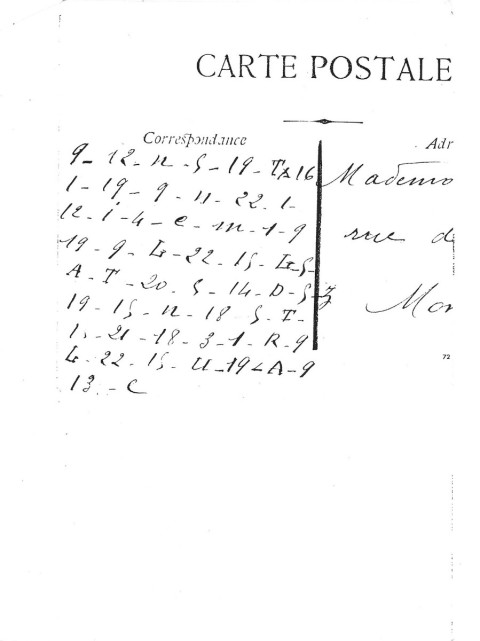 CARTE POSTALE
Correspondance
Adr
9 - 12 - n - 5 - 19 - T - 16
1 - 19 - 9 - n - 22 - 1 -
12 - i - 4 - e - m - 1 - 9
19 - 9 - L - 22 - 15 - L - 5 -
A - T - 20 - 5 - 14 - D - 5 - Z
19 - 15 - n - 18 - 5 - T -
15 - 21 - 18 - 3 - 1 - R - 9
L - 22 - 15 - U - 19 - A - 9
13 - C
Mademo
rue d
Mor
72